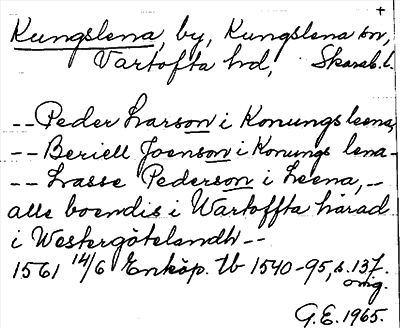 +
Kungslena, by, Kungslena sn,
Vartofta hd, Skarab.l.
--Peder Larson i Konungsleena,
--Beriell Joenson i Konungs lena-
--Lasse Pederson i Leena,--
alle boendis i Wartoffta härad
i Westergötelandh--
1561 14/6 Enköp. tb 1540-95, s. 137.
orig.
G.E. 1965.